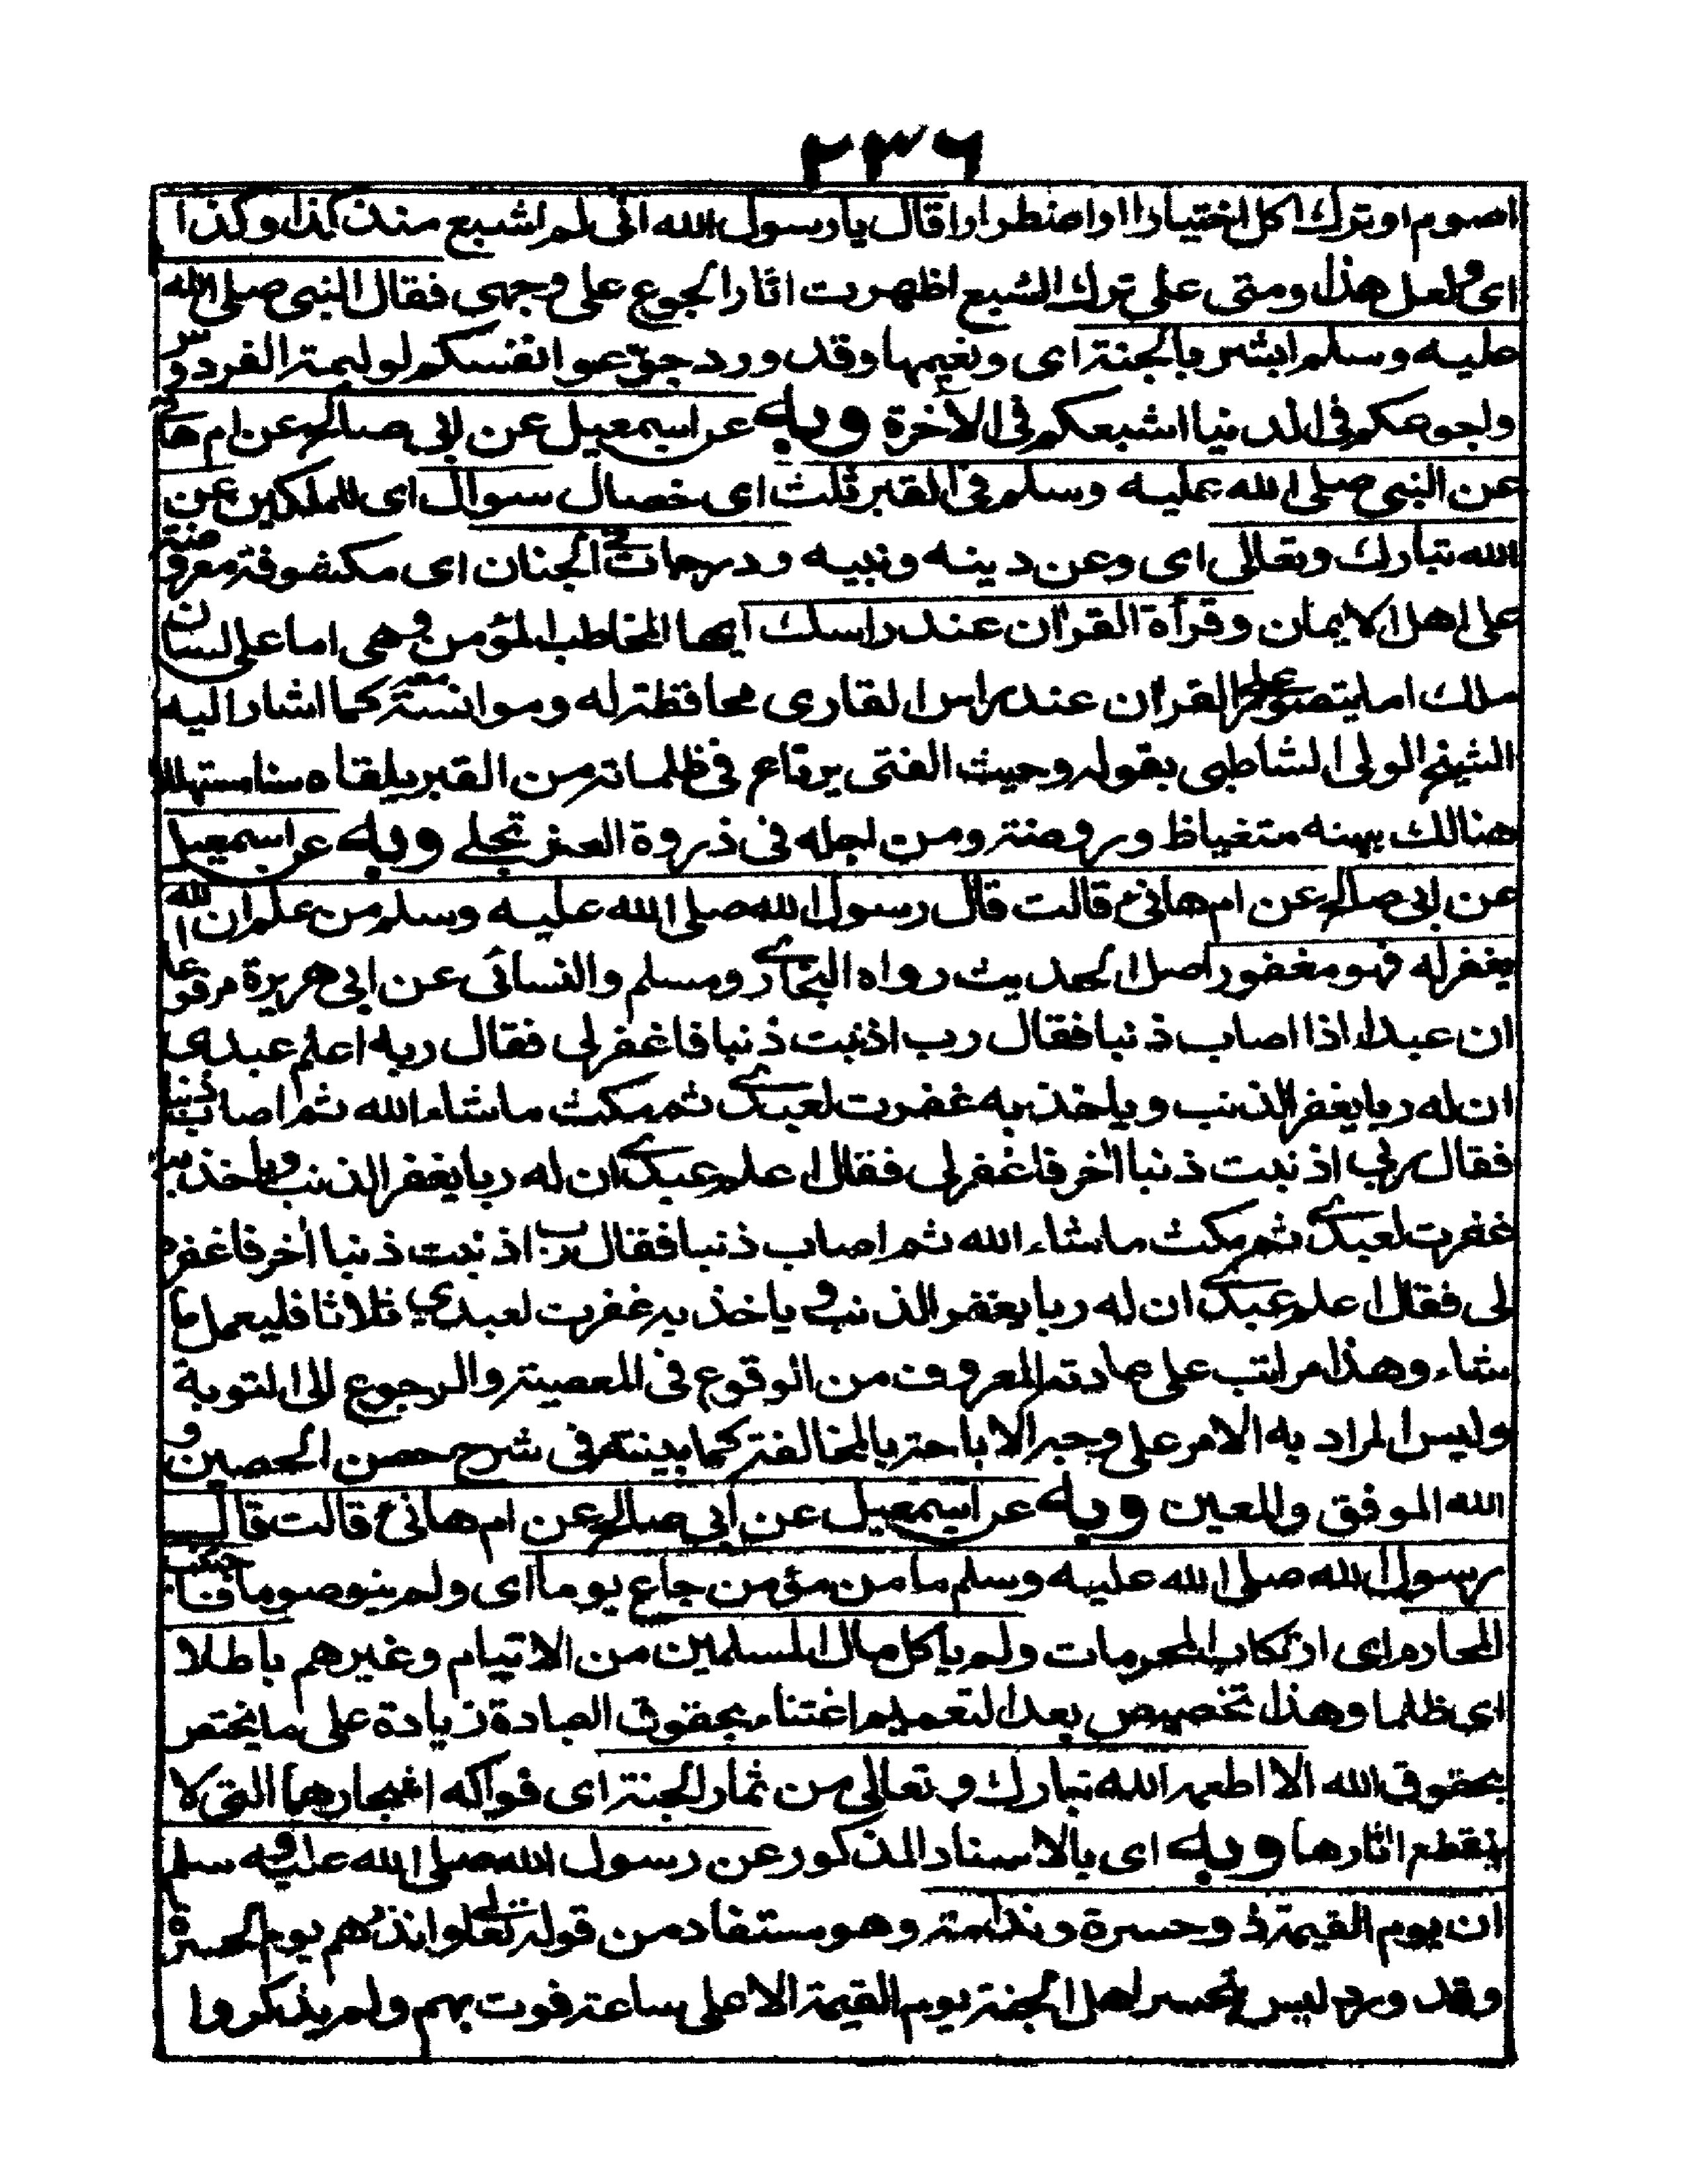 ٢٣٦
اصوم او ترك اكل اختيارا او اضطرارا قال يا رسول الله انى لم اشبع منذ كذا وكذا
اى ولعل هذا ومتى على ترك الشبع اظهرت اثار الجوع على وجهى فقال النبى صلى الله
عليه وسلم ابشر بالجنة اى ونعيمها وقد ورد جوّعوا انفسكم لوليمة الفردوس
ولجوعكم فى الدنيا اشبعكم فى الآخرة وبه عن اسمعيل عن ابى صالح عن ام هانئ
عن النبى صلى الله عليه وسلم فى القبر ثلث اى خصال سوال اى للملكين عن
الله تبارك وتعالى اى وعن دينه ونبيه ودرجات فى الجنان اى مكشوفة معروضة
على اهل الايمان وقرأة القران عند راسك ايها المخاطب المؤمن وهى اما على لسان
ملك اما بتصوير القران عند راس القارى محافظة له وموانسة معه كما اشار اليه
الشيخ الولى الشاطبى بقوله وحيث الفتى يرتاع فى ظلماته من القبر يلقاه سنا مستهللا
هنالك يهنه متغياظ وروضة ومن اجله فى ذروة العز تجلے وبه عن اسمعيل
عن ابى صالح عن ام هانئ قالت قال رسول الله صلى الله عليه وسلم من علم ان الله
يغفر له فهو مغفور اصل الحديث رواه البخارى ومسلم والنسائى عن ابى هريرة مرفوعا
ان عبدا اذا اصاب ذنبا فقال رب اذنبت ذنبا فاغفر لى فقال ربه اعلم عبدى
ان له ربا يغفر الذنب وياخذ به غفرت لعبدى ثم مكث ما شاء الله ثم اصاب ذنبا
فقال ربى اذنبت ذنبا اخر فاغفر لى فقال اعلم عبدى ان له ربا يغفر الذنب وياخذ به
غفرت لعبدى ثم مكث ما شاء الله ثم اصاب ذنبا فقال رب اذنبت ذنبا اخر فاغفر
لى فقال اعلم عبدى ان له ربا يغفر الذنب و ياخذ به غفرت لعبدى ثلاثا فليعمل ما
شاء وهذا مراتب على عادته المعروف من الوقوع فى المعصية والرجوع الى التوبة
وليس المراد به الامر على وجه الاباحة بالمخالفة كما بينته فى شرح حصن الحصين و
الله الموفق والمعين وبه عن اسمعيل عن ابى صالح عن ام هانئ قالت قال
رسول الله صلى الله عليه وسلم ما من مؤمن جاع يوما اى ولم ينو صوما فاجتنب
المحارم اى ارتكاب المحرمات ولم ياكل مال المسلمين من الايتام وغيرهم باطلا
اى ظلما وهذا تخصيص بعد التعميم اعتناء بحقوق العبادة زيادة على ما يختص
بحقوق الله الا اطعمه الله تبارك و تعالى من ثمار الجنة اى فواكه اشجارها التى لا
ينقطع اثارها وبه اى بالاسناد المذكور عن رسول الله صلى الله عليه وسلم
ان يوم القيمة ذو حسرة وندامة وهو مستفاد من قوله تعالى وانذرهم يوم الحسرة
وقد ورد ليس يتحسر اهل الجنة يوم القيمة الا على ساعة فوت بهم ولم يذكروا